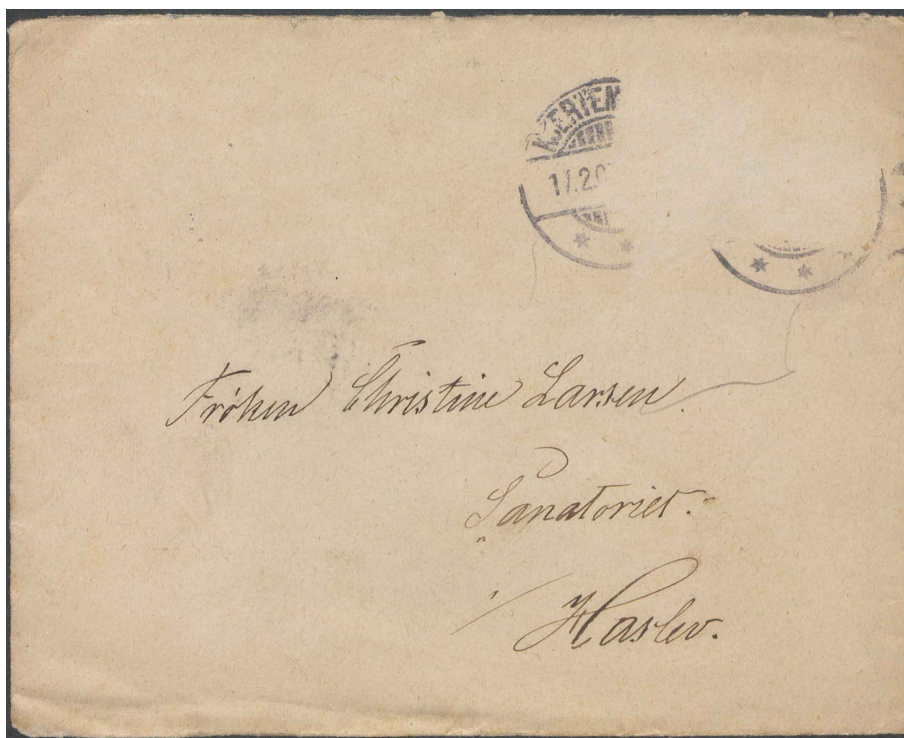 KJERTEM
17.2.0
Frøken Christine Larsen
Sanatoriet.
Haslev.